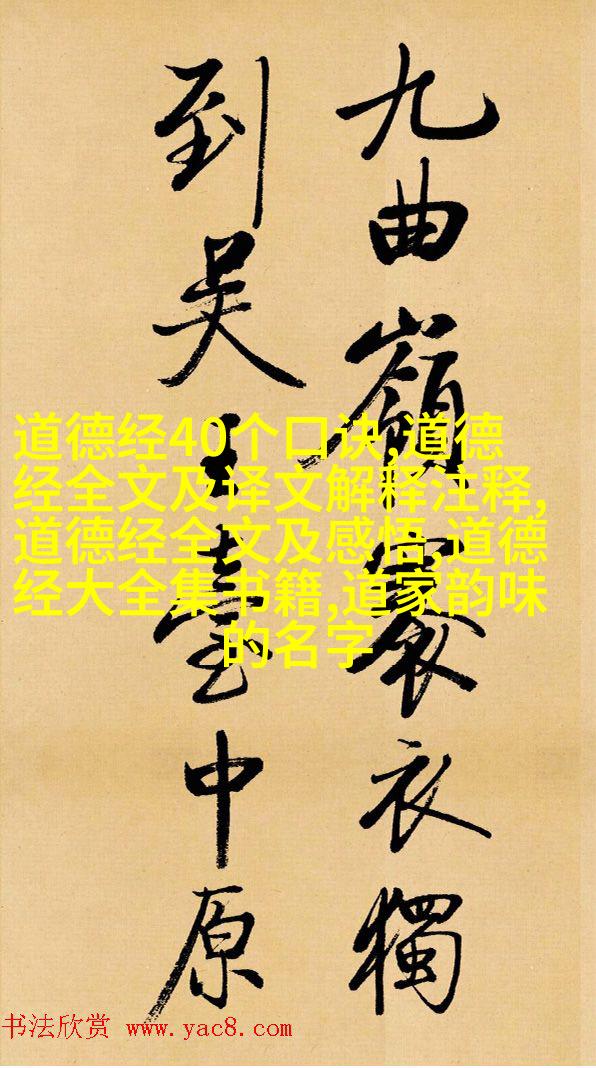 九曲嶺褰衣獨
到吴王臺中原
道德经40个口诀,道德
经全文及译文解释注释,
道德经全文及感悟,道德
经大全集书籍,道家韵味
的名字
书法欣赏 www.yac8.com